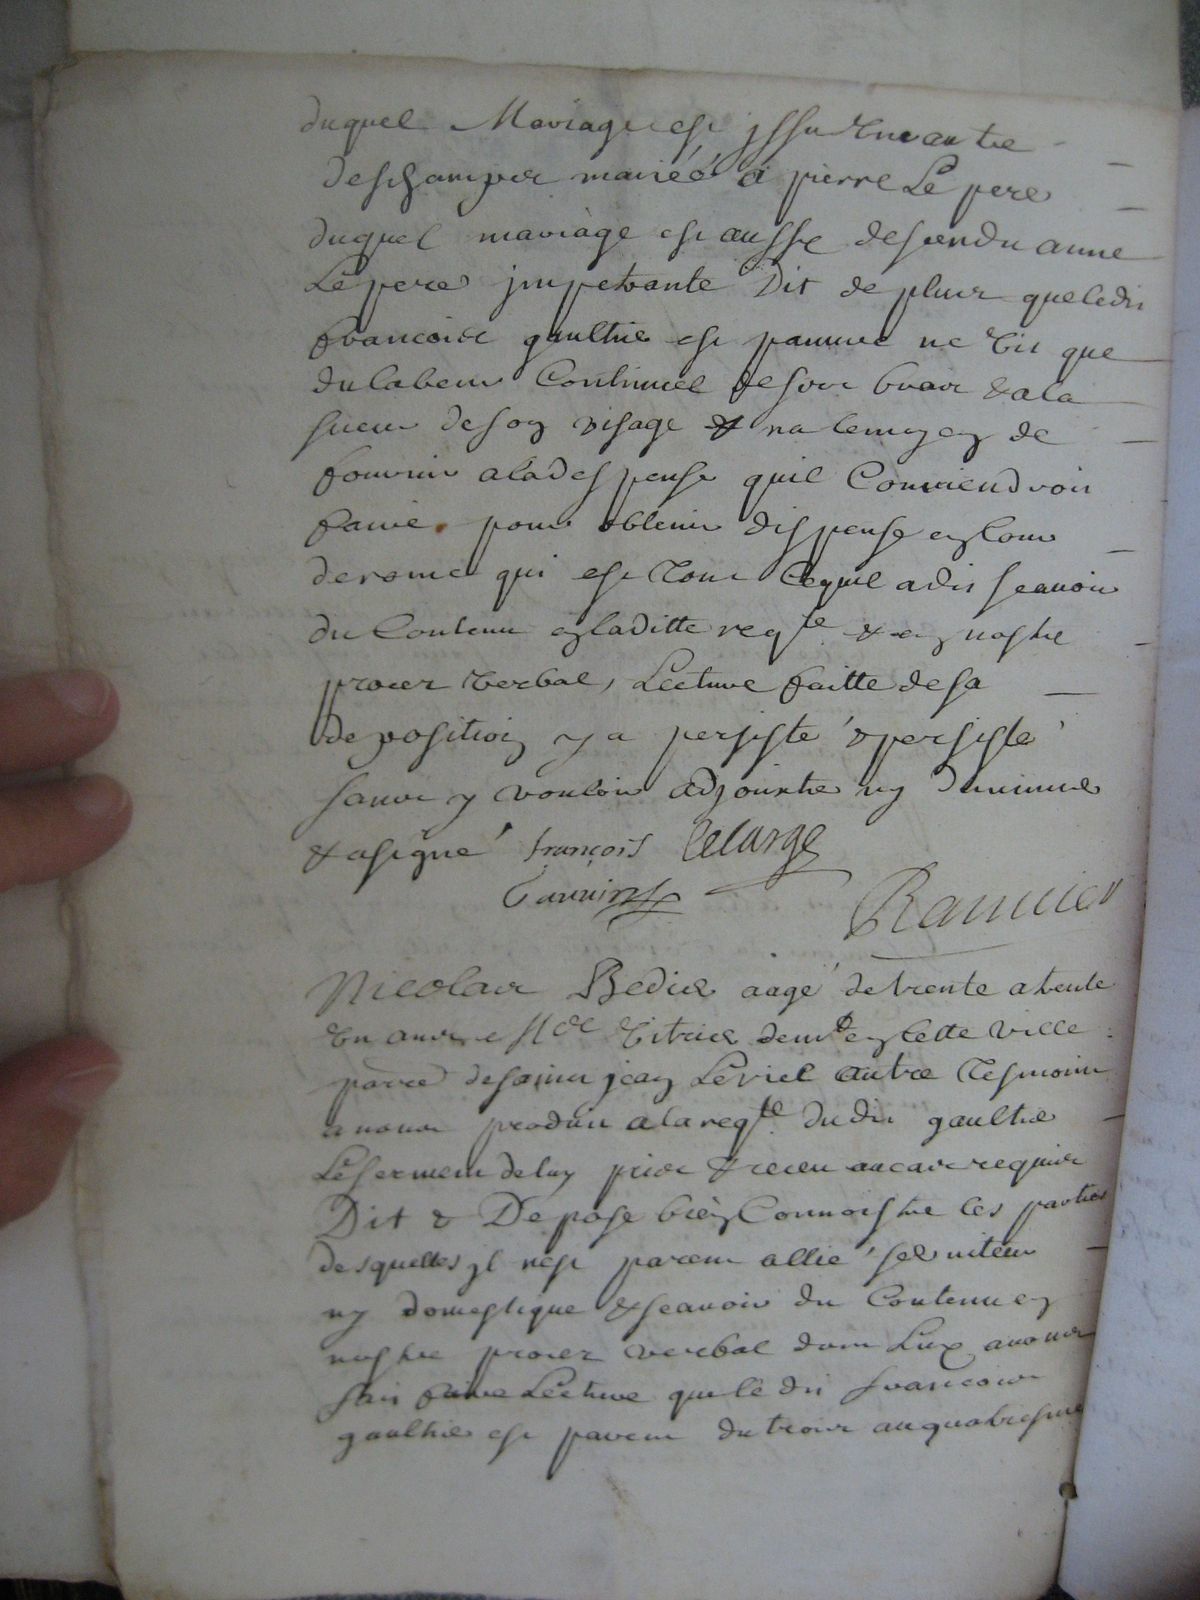 duquel Mariage est jssu Une autre
deschamps mariéé a pierre Le pere
duquel mariage est aussy desendu anne
Le pere jmpetrante Dit de plus que ledit
francois gaultier est pauure ne Vit que
du labeur Continuel de son bras & a la
sueur de son visage & na le moyen de
fournir a la despense quil Conuiendroit
faire pour obtenir dispense en Cour
de rome qui est tout Ce quil a dit scauoir
du Contenu en laditte reqte & en nostre
proces Verbal, Lecture faitte de sa
deposition y a persisté & persisté
sans y vouloir adjouxter ny diminuer
& a signé françois lelarge
Rannier
Nicolas Bedier aagé de trente a trente
Un ans Me Vitrier demt en Cette Ville
parce de saint jean Leviel autre Tesmoin
a nous produit a la reqte du dit gaultier
Le serment de luy pris & receu au cas requis
Dit & Depose bien Connoistre les parties
desquelles jl nest parent allié seruiteur
ny domestique & scauoir du Contenu en
nostre proces verbal dont Luy auons
fait faire Lecture que le dit francois
gaultier est parent du trois au quatriesme